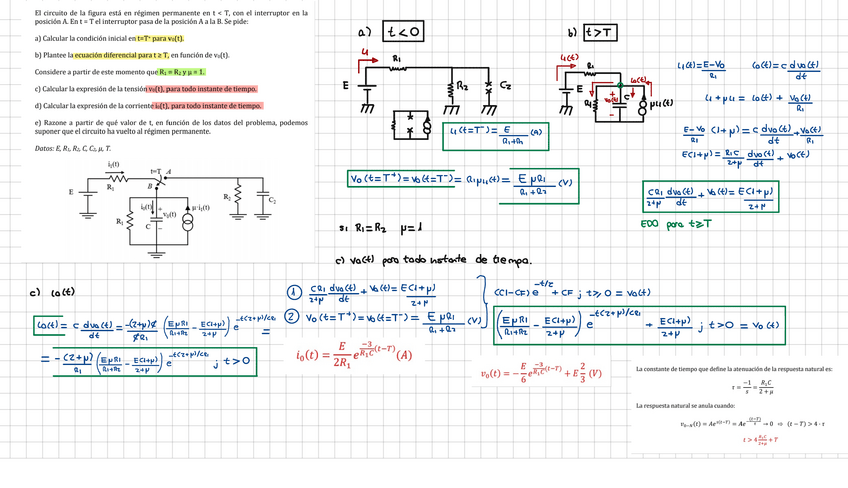 El circuito de la figura está en régimen permanente en t < T, con el interruptor en la
posición A. En t = T el interruptor pasa de la posición A a la B. Se pide:
a) Calcular la condición inicial en t=T⁺ para v₀(t).
b) Plantee la ecuación diferencial para t ≥ T, en función de v₀(t).
Considere a partir de este momento que R₁ = R₂ y μ = 1.
c) Calcular la expresión de la tensión v₀(t), para todo instante de tiempo.
d) Calcular la expresión de la corriente i₀(t), para todo instante de tiempo.
e) Razone a partir de qué valor de t, en función de los datos del problema, podemos
suponer que el circuito ha vuelto al régimen permanente.
Datos: E, R₁, R₂, C, C₂, μ, T.
i₁(t) t=T A
E R₁ B
i₀(t) v₀(t) μ·i₁(t)
R₁ C R₂ C₂
a) t<0
R₁
E R₂ C₂
i₁(t=T⁻) = E/(R₁+R₂) (A)
V₀(t=T⁺) = V₀(t=T⁻) = R₁μi₁(t) = EμR₁/(R₁+R₂) (V)
b) t>T
i₁(t) R₁ i₀(t)
E R₁ V₀(t) C μi₁(t)
i₁(t) = (E-V₀)/R₁ i₀(t) = C dv₀(t)/dt
i₁+μi₁ = i₀(t) + V₀(t)/R₁
(E-V₀)/R₁ (1+μ) = C dv₀(t)/dt + V₀(t)/R₁
E(1+μ) = R₁C/(2+μ) dv₀(t)/dt + V₀(t)
CR₁/(2+μ) dv₀(t)/dt + V₀(t) = E(1+μ)/(2+μ)
EDO para t≥T
si R₁=R₂ μ=1
c) V₀(t) para todo instante de tiempo.
1 CR₁/(2+μ) dv₀(t)/dt + V₀(t) = E(1+μ)/(2+μ)
2 V₀(t=T⁺) = V₀(t=T⁻) = EμR₁/(R₁+R₂) (V)
(CI-CF) e^(-t/τ) + CF ; t≥0 = V₀(t)
(EμR₁/(R₁+R₂) - E(1+μ)/(2+μ)) e^(-t(2+μ)/CR₁) + E(1+μ)/(2+μ) ; t>0 = V₀(t)
c) i₀(t)
i₀(t) = C dv₀(t)/dt = -(2+μ)C/(CR₁) (EμR₁/(R₁+R₂) - E(1+μ)/(2+μ)) e^(-t(2+μ)/CR₁) =
= -(2+μ)/R₁ (EμR₁/(R₁+R₂) - E(1+μ)/(2+μ)) e^(-t(2+μ)/CR₁) ; t>0
i₀(t) = E/(2R₁) e^(-3/(R₁C)(t-T)) (A)
v₀(t) = -E/6 e^(-3/(R₁C)(t-T)) + E 2/3 (V)
La constante de tiempo que define la atenuación de la respuesta natural es:
τ = -1/s = R₁C/(2+μ)
La respuesta natural se anula cuando:
v₀₋ₙ(t) = Ae^(s(t-T)) = Ae^(-(t-T)/τ) → 0 ⇒ (t-T) > 4·τ
t > 4 R₁C/(2+μ) + T